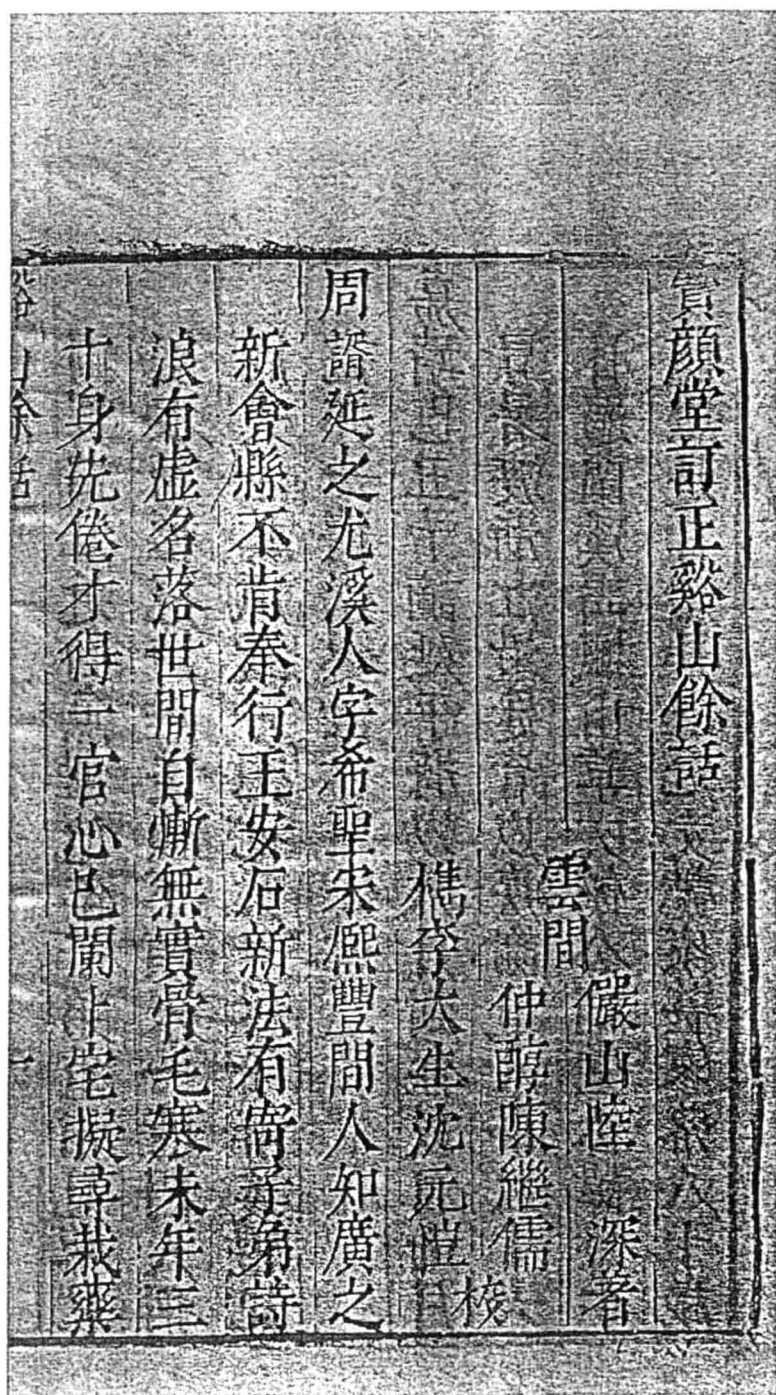 寶顏堂訂正谿山餘話
雲間
儼山陸 深著
仲醇陳繼儒
檇李大生沈元愷
校
周諝延之尤溪人字希聖宋熈豐間人知廣之
新會縣不肯奉行王安石新法有寄子弟詩
浪有虛名落世間自慚無實骨毛寒未年三
十身先倦才得一官心已闌卜宅擬尋栽藥
谿山餘話
一